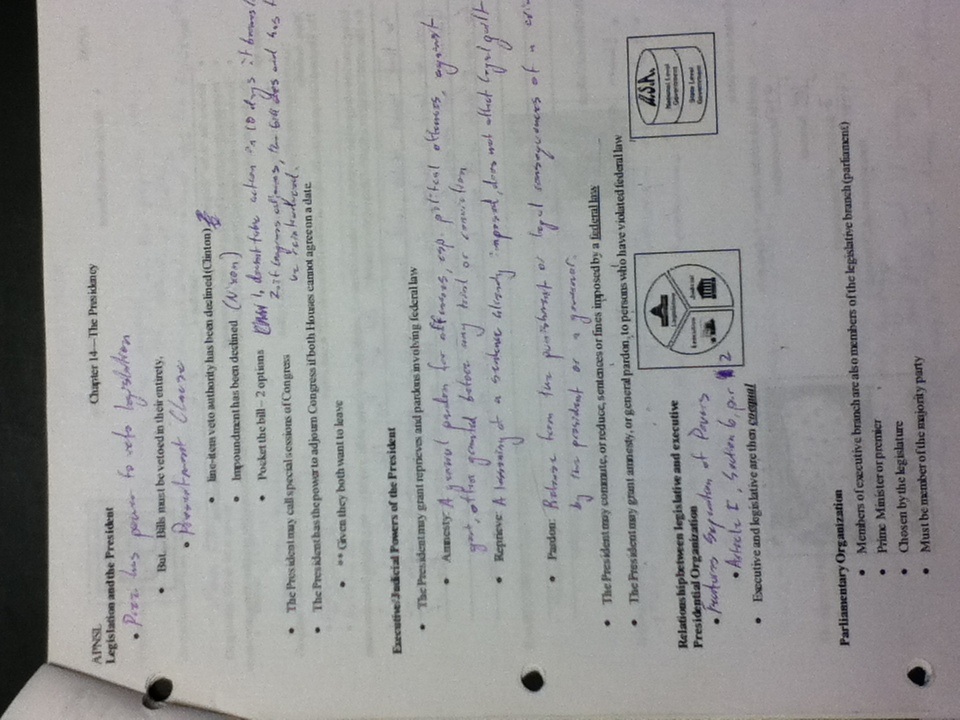 APNSL Chapter 14—The Presidency
Legislation and the President
• Prez has power to veto legislation
• But Bills must be vetoed in their entirety.
• Presentment Clause
• line-item veto authority has been declined (Clinton)
• Impoundment has been declined (Nixon)
• Pocket the bill – 2 options 1. doesn't take action in 10 days it becomes
2. if Congress adjourns, the bill dies and has
be reintroduced.
• The President may call special sessions of Congress
• The President has the power to adjourn Congress if both Houses cannot agree on a date.
• ** Given they both want to leave
Executive/Judicial Powers of the President
• The President may grant reprieves and pardons involving federal law
• Amnesty: A general pardon for offenses, esp. political offenses, against
govt, often granted before any trial or conviction
• Reprieve: A lessening of a sentence already imposed, does not affect legal guilt
• Pardon: Release from the punishment or legal consequences of a
by the president or a governor.
• The President may commute, or reduce, sentences or fines imposed by a federal law
• The President may grant amnesty, or general pardon, to persons who have violated federal law
Legislative
Executive
Judicial
U.S.A.
National Level
Government
State Level
Government
Relationship between legislative and executive
Presidential Organization
• Features Separation of Powers
• Article I, Section 6, par 2
• Executive and legislative are then coequal
Parliamentary Organization
• Members of executive branch are also members of the legislative branch (parliament)
• Prime Minister or premier
• Chosen by the legislature
• Must be member of the majority party